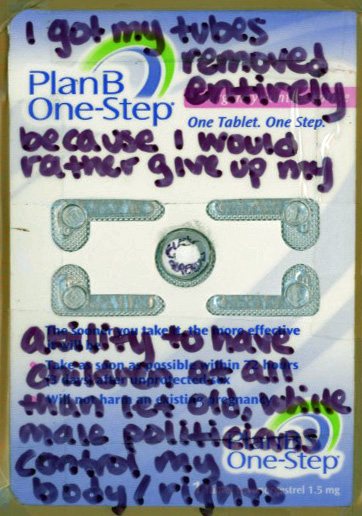 I got my tubes
removed
PlanB
One-Step®
entirely
One Tablet. One Step.
because I would
rather give up my
The sooner you take it, the more effective
it will be
ability to have
Take as soon as possible within 72 hours
(3 days) after unprotected sex
at all
Will not harm an existing pregnancy
than let old, white
male politicians
PlanB
One-Step®
control my
body/rights
1.5 mg